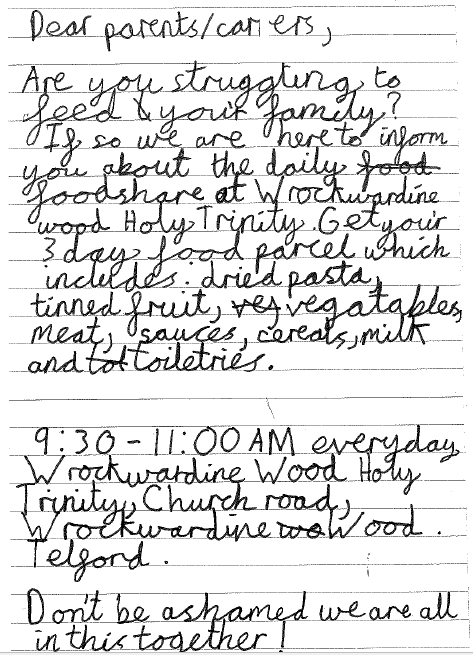 Dear parents/carers,
Are you struggling to
feed your family?
If so we are here to inform
you about the daily food
foodshare at Wrockwardine
wood Holy Trinity. Get your
3 day food parcel which
includes: dried pasta,
tinned fruit, veg vegatables,
meat, sauces, cereals, milk
and tol toiletries.
9:30 - 11:00 AM everyday
Wrockwardine Wood Holy
Trinity, Church road,
Wrockwardine wo Wood.
Telford.
Don't be ashamed we are all
in this together!